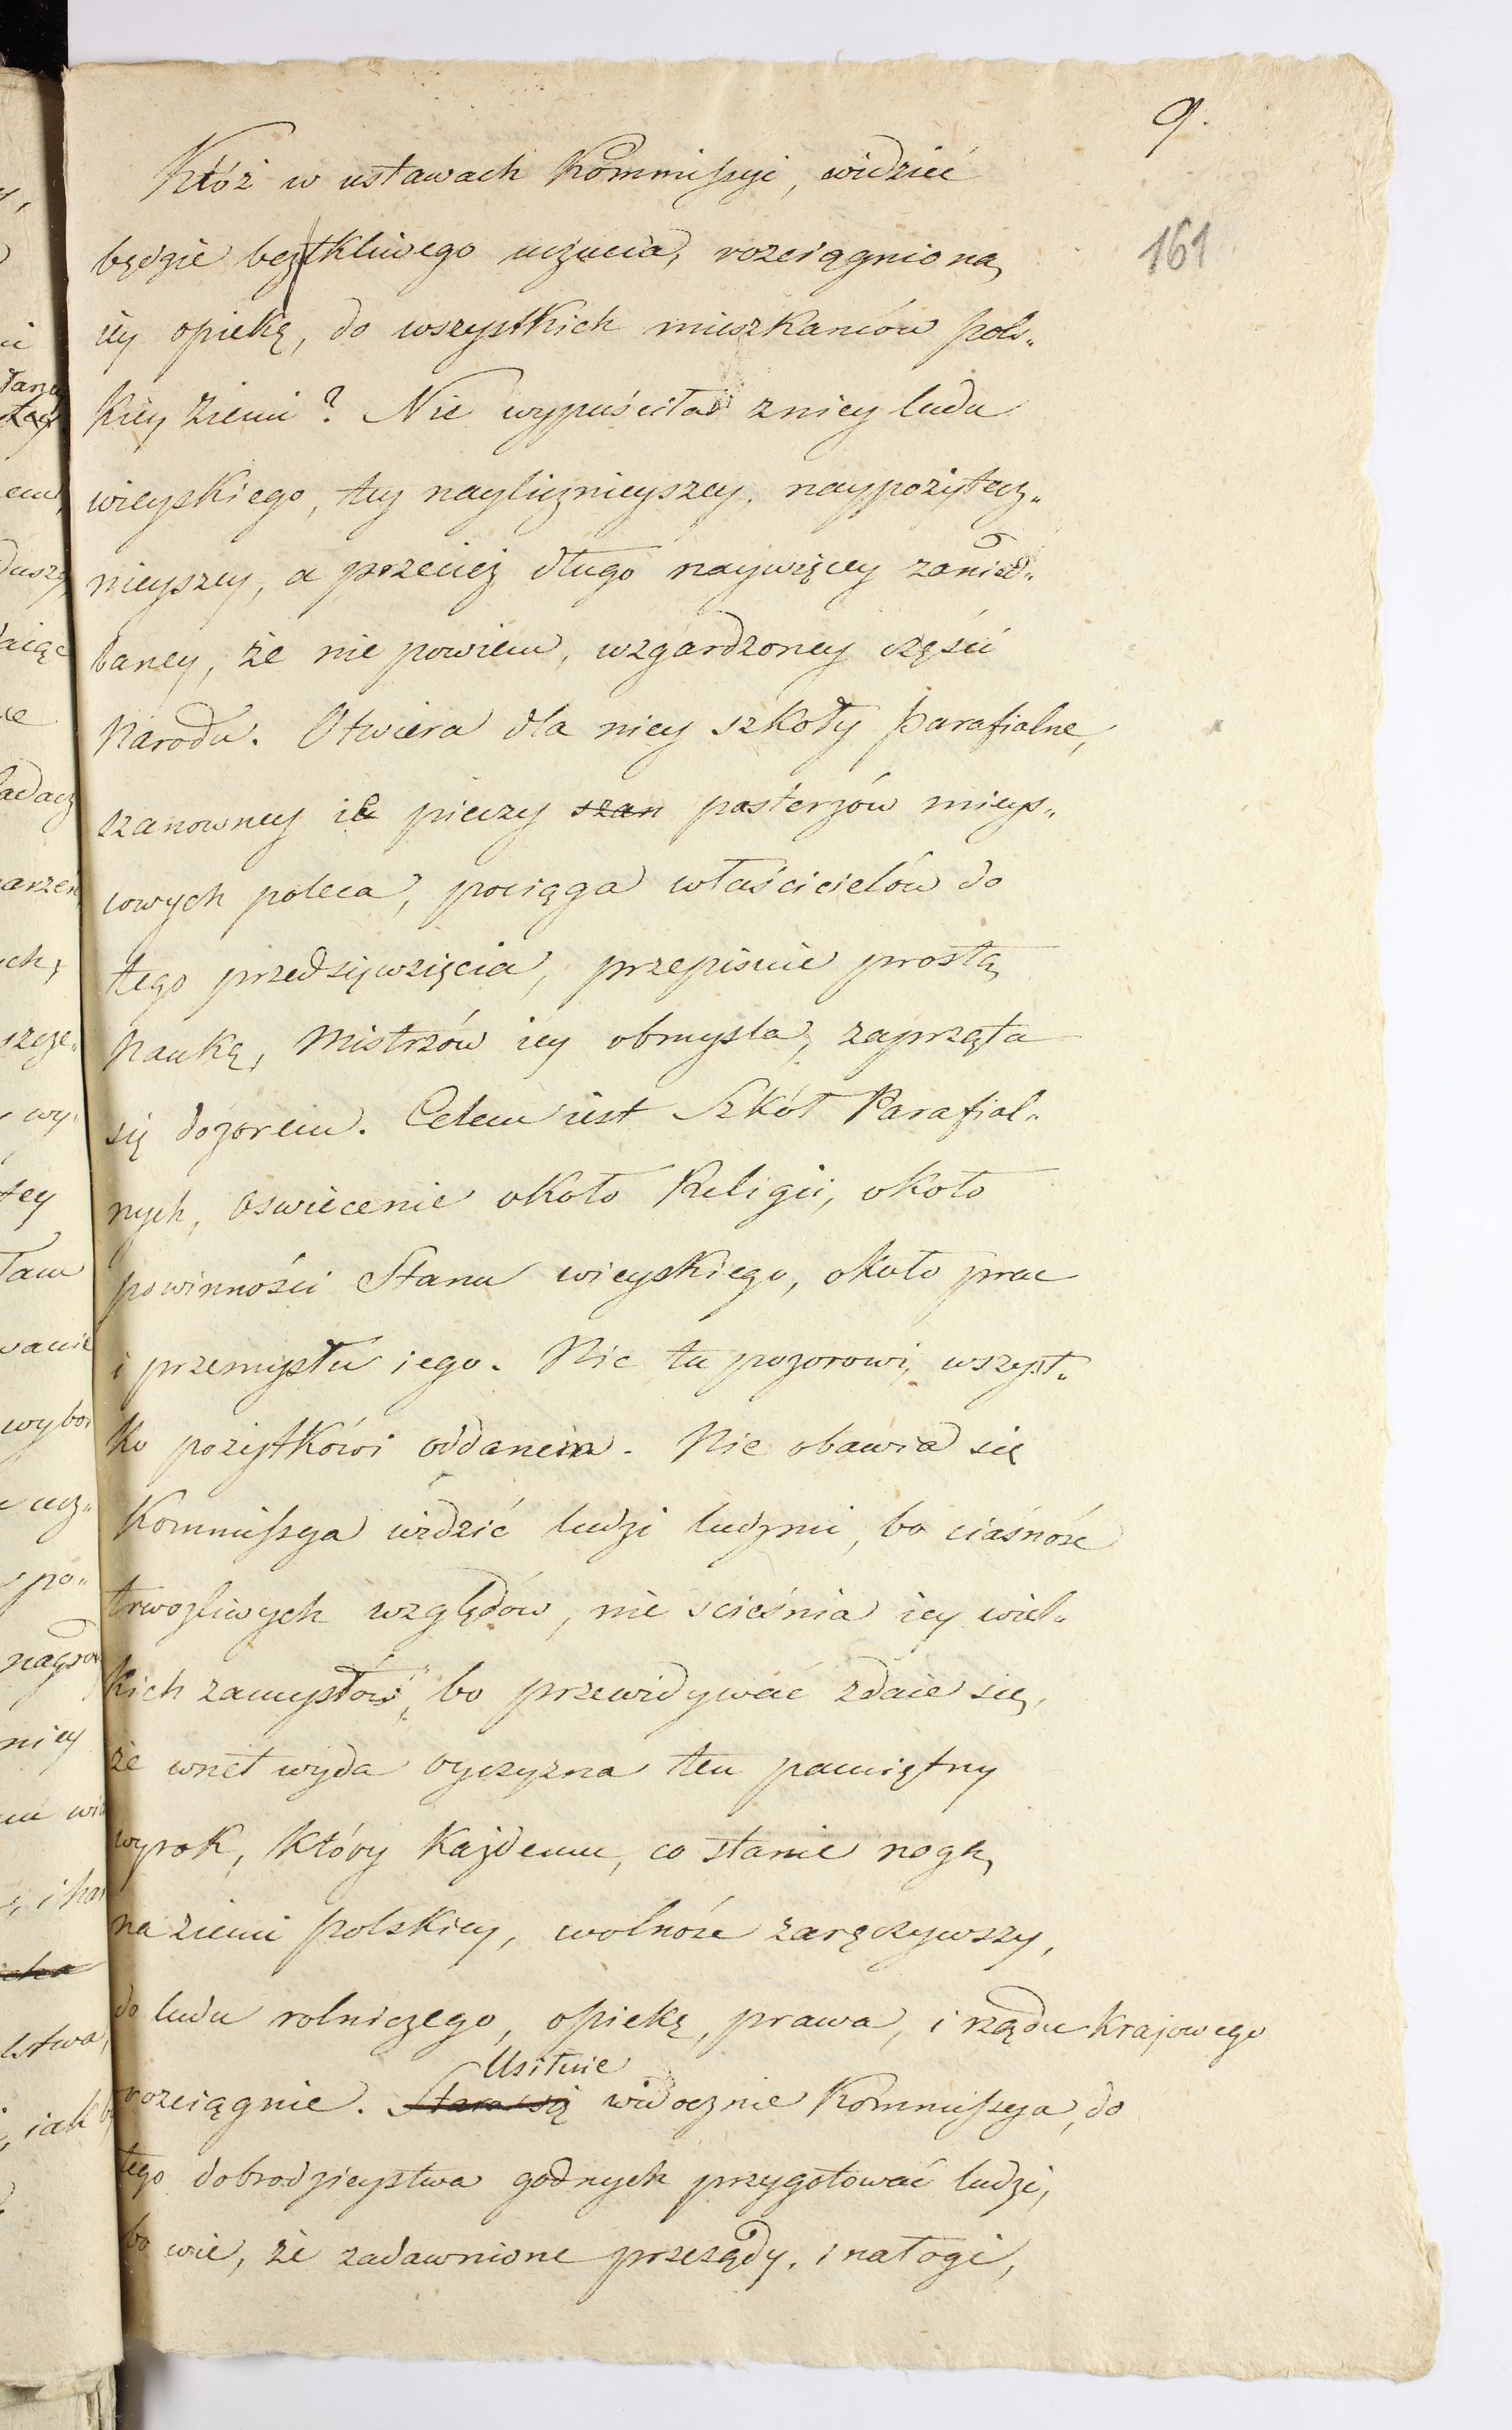 9.
161
Któż w ustawach Kommissyi, widzieć
będzie bez tkliwego uczucia, rozciągnioną
iey opiekę, do wszystkich mieszkańców pols„
kiey ziemi? Nie wypuściła z niey ludu
wieyskiego, tey naylicznieyszey, naypożytecz„
nieyszey, a przecież długo naywięcey zanied„
baney, że nie powiem, wzgardzoney części
Narodu. Otwiera dla niey szkoły parafialne,
szanowney ie pieczy szan pasterzów mieys„
cowych poleca, pociąga właścicielów do
tego przedsięwzięcia, przepisuie prostą
Naukę, Mistrzów iey obmyśla, zaprząta
się dozorem. Celem iest Szkół Parafial„
nych, Oswiecenie około Religii, około
powinności Stanu wieyskiego, około prac
i przemysłu iego. Nic tu pozorowi, wszyst„
ko pożytkówi oddanem. Nie obawia się
Kommissya widzić ludzi ludzmi, bo ciaśność
trwozliwych względów, nie scieśnia iey wiel„
kich zamysłów, bo przewidywać zdaie się,
że wnet wyda oyczyzna ten pamiętny
wyrok, który każdemu, co stanie nogą,
na ziemi polskiey, wolność zaręczywszy,
do ludu rolniczego, opiekę, prawa, i rządu krajowego
Usiłuie
rozciągnie. Stara się widocznie Kommissya, do
tego dobrodzieystwa godnych przygotować ludzi,
bo wie, że zadawnione przesądy, i nałogi,